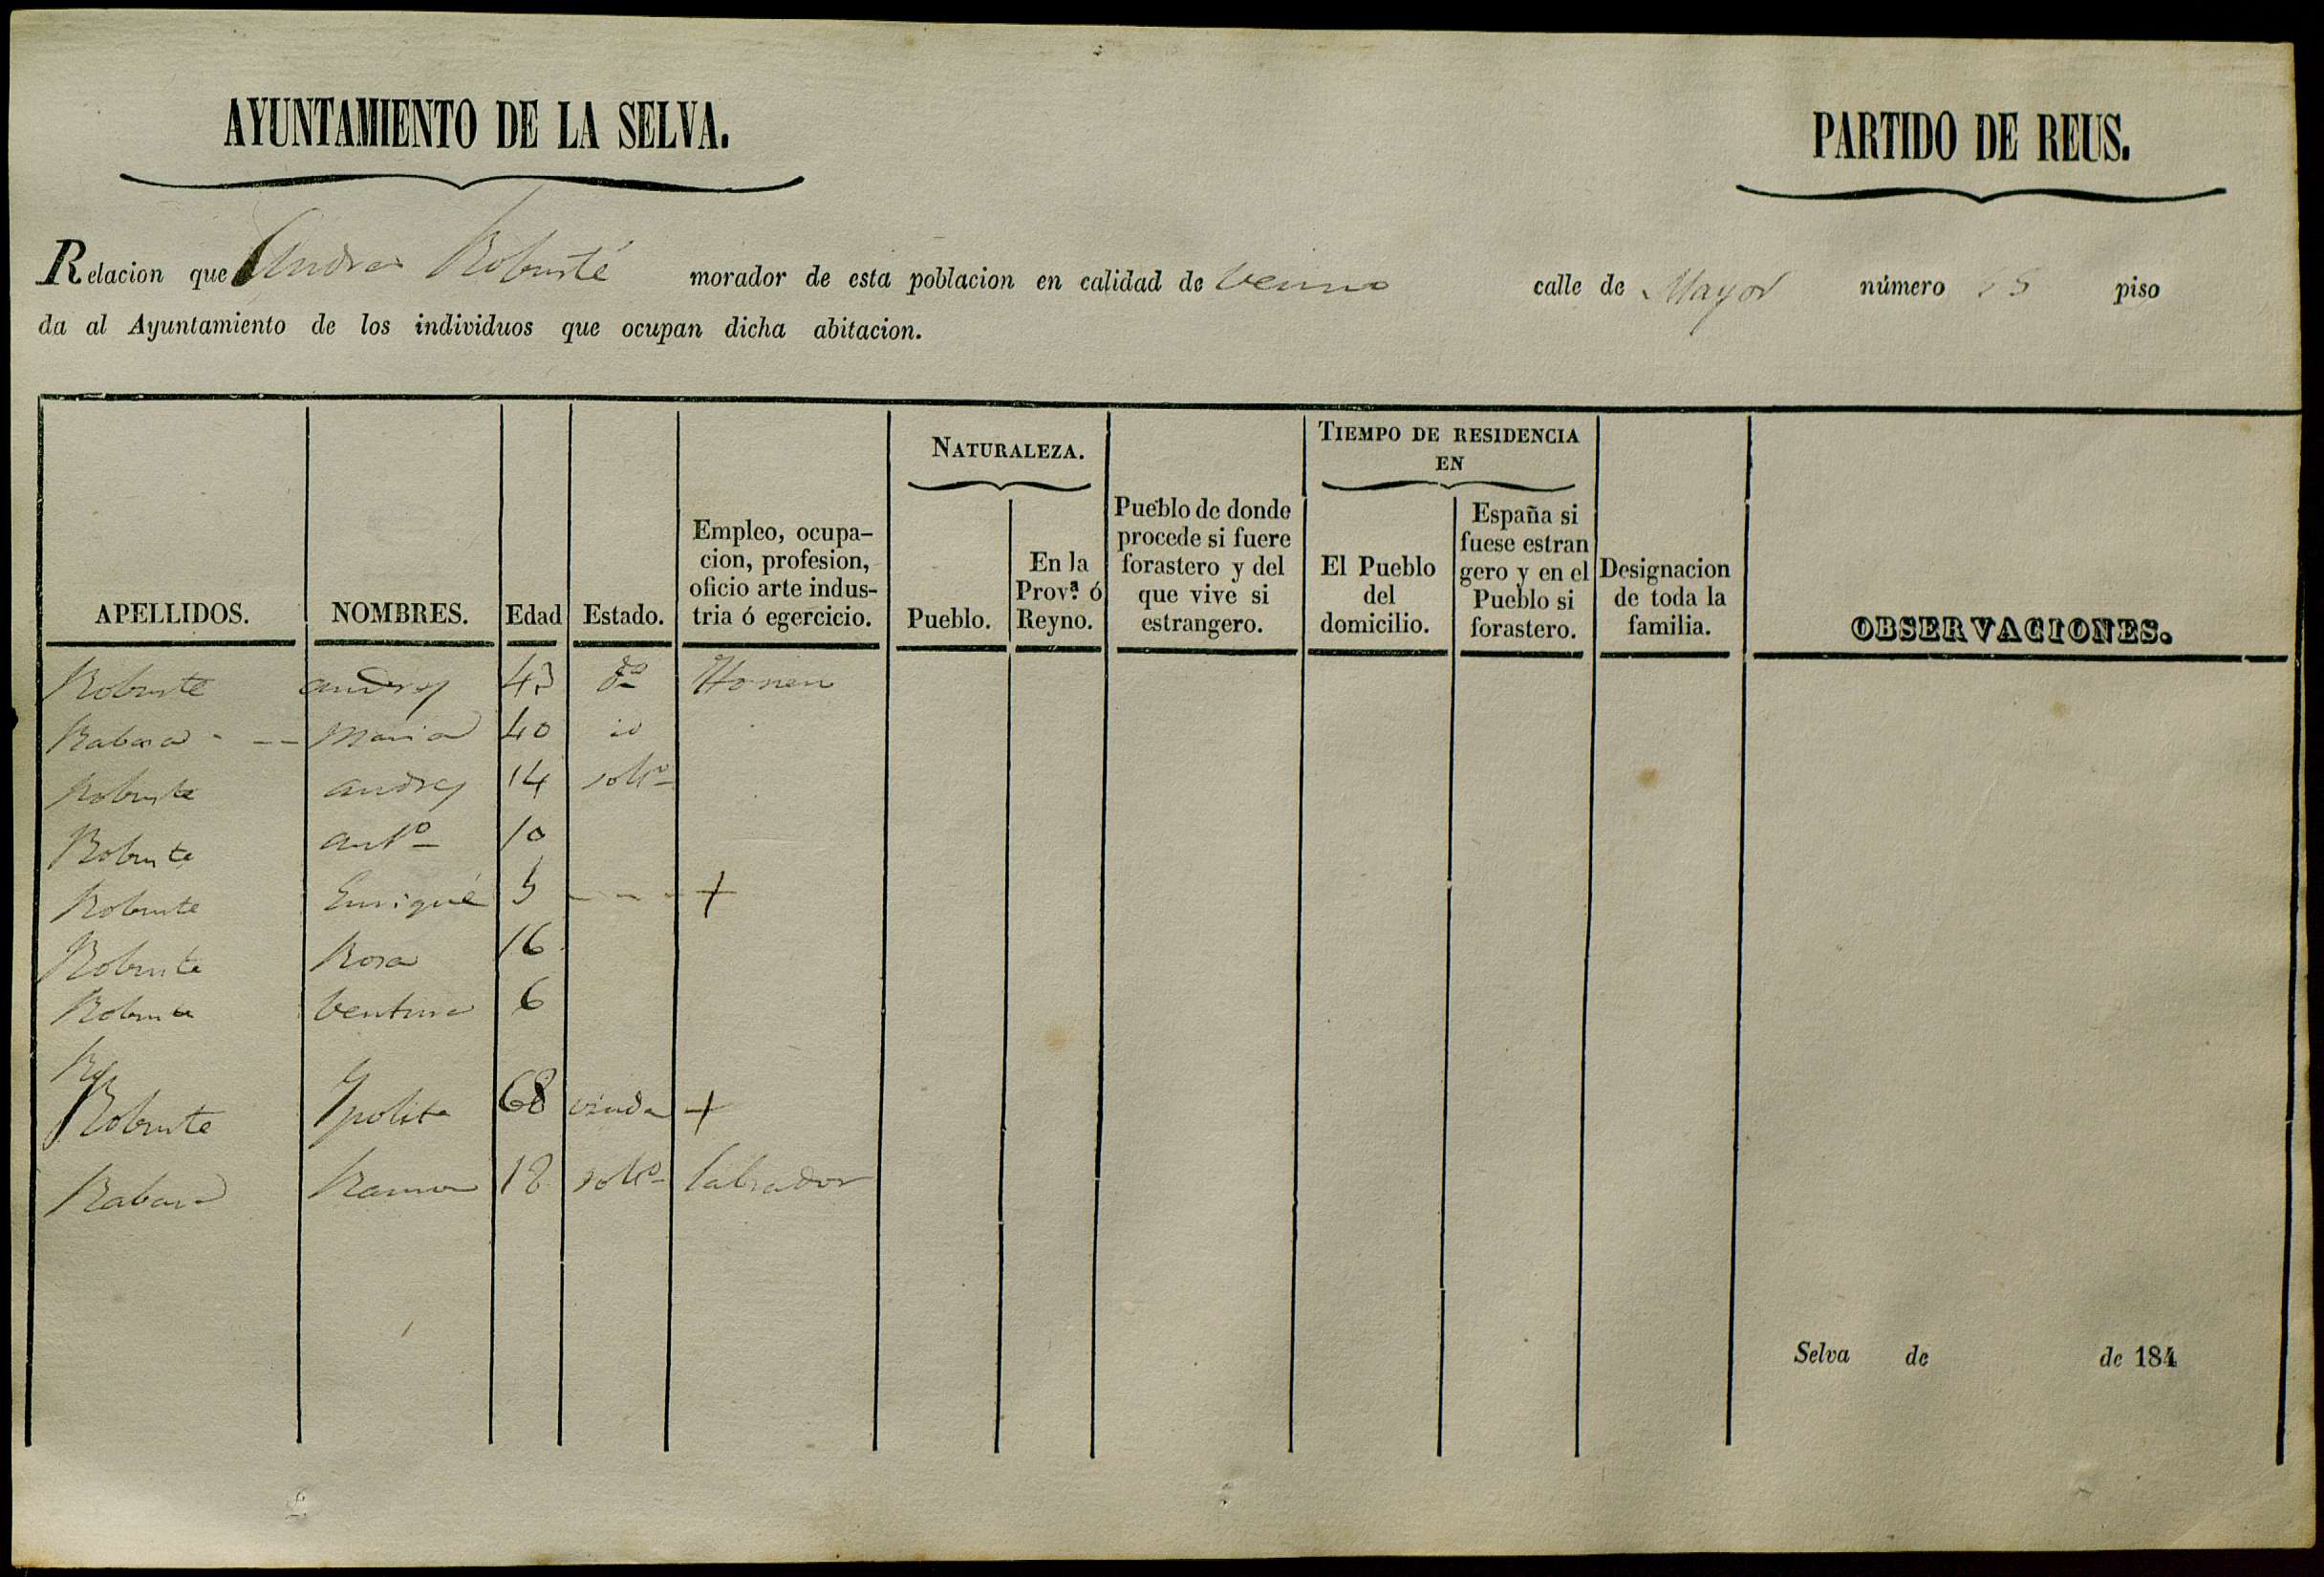 AYUNTAMIENTO DE LA SELVA.
PARTIDO DE REUS.
Relacion que Andres Robusté morador de esta poblacion en calidad de Vecino calle de Mayor número piso
da al Ayuntamiento de los individuos que ocupan dicha abitacion.
NATURALEZA.
TIEMPO DE RESIDENCIA
EN
APELLIDOS.
NOMBRES.
Edad
Estado.
Empleo, ocupa-
cion, profesion,
oficio arte indus-
tria ó egercicio.
Pueblo.
En la
Prov.ª ó
Reyno.
Pueblo de donde
procede si fuere
forastero y del
que vive si
estrangero.
El Pueblo
del
domicilio.
España si
fuese estran
gero y en el
Pueblo si
forastero.
Designacion
de toda la
familia.
OBSERVACIONES.
Robuste andres 43
Maria 40 id
Robuste andres 14 solt.º
Robuste ant.º 10
Robuste Enriqué 5 - - - +
Robuste Rosa 16
Robuste Ventura 6
Robuste Ypolita 68 viuda +
Ramon 18 solt.º labrador
Selva de de 184